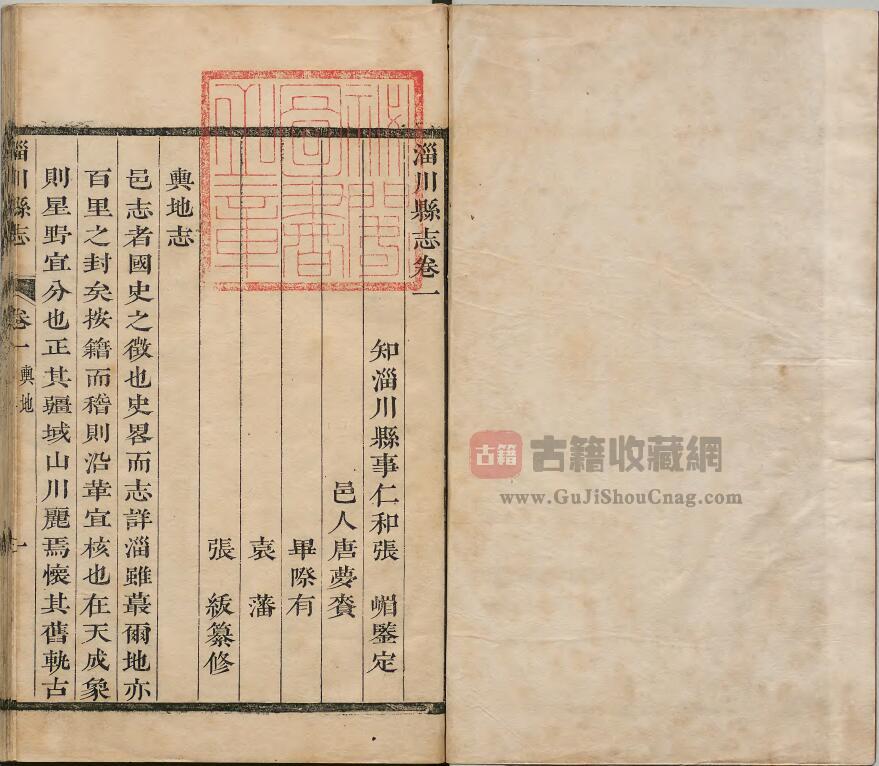 淄川縣志卷一
知淄川縣事仁和張嵋鑒定
邑人唐夢賚
畢際有
袁藩
張紱纂修
輿地志
邑志者國史之徵也史畧而志詳淄雖蕞爾地亦
百里之封矣按籍而稽則沿革宜核也在天成象
則星野宜分也正其疆域山川麗焉懷其舊軌古
淄川縣志
卷一
輿地
一
古籍
古籍收藏網
www.GuJiShouCnag.com